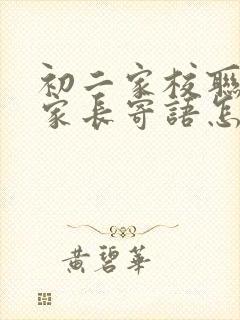 初二家校聯
家長寄語怎
黃碧華